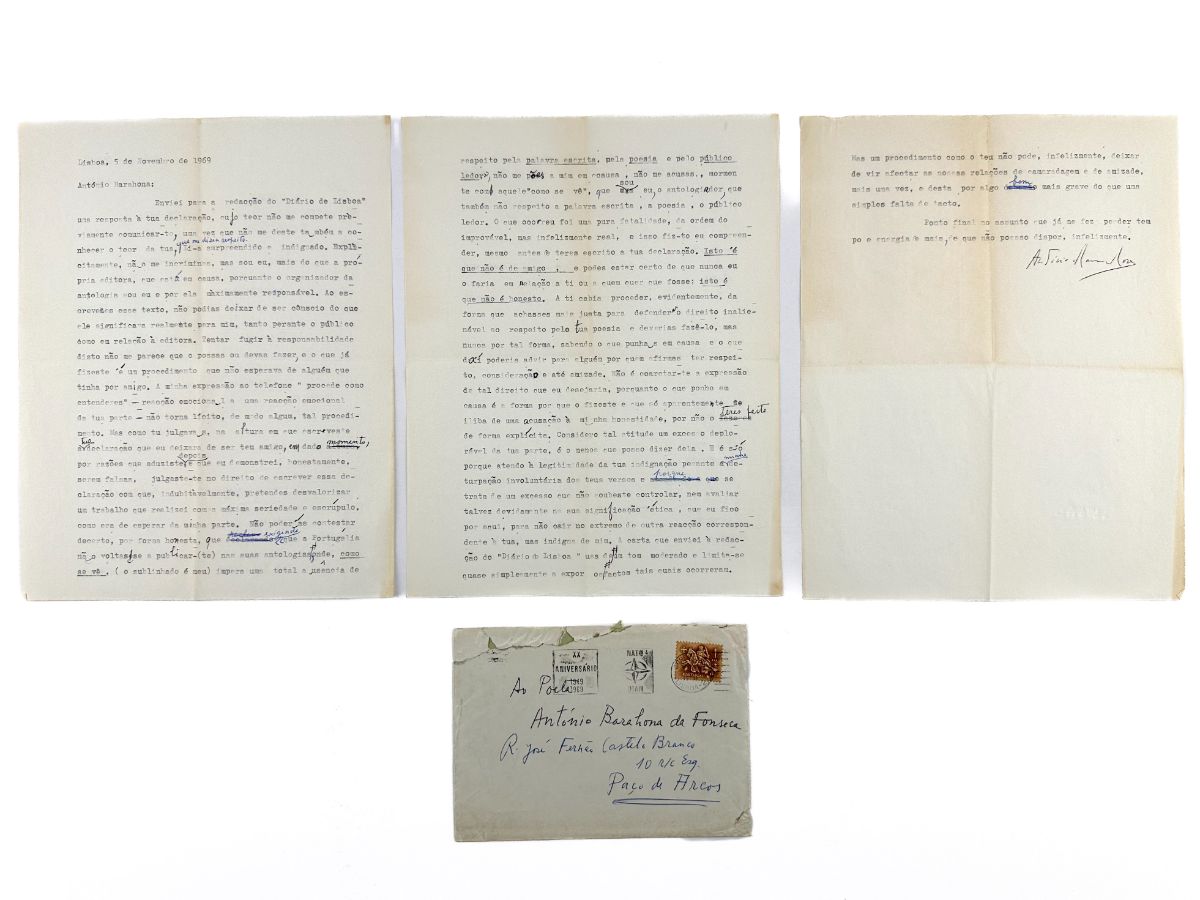 Lisboa, 5 de Novembro de 1969
António Barahona:
Enviei para a redacção do "Diário de Lisboa"
uma resposta à tua declaração, cujo teor não me compete prè-
viamente comunicar-to, uma vez que não me deste também a co-
nhecer o teor da tua, que me dizia respeito. Li-a surpreendido e indignado. Explì-
citamente, não me incriminas, mas sou eu, mais do que a pró-
pria editora, que está em causa, porquanto o organizador da
antologia sou eu e por ela màximamente responsável. Ao es-
creveres esse texto, não podias deixar de ser cônscio do que
ele significava realmente para mim, tanto perante o público
como em relação à editora. Tentar fugir à responsabilidade
disto não me parece que o possas ou devas fazer, e o que já
fizeste é um procedimento que não esperava de alguém que
tinha por amigo. A minha expressão ao telefone " procede como
entenderes" — reacção emocional a uma reacção emocional
da tua parte — não torna lícito, de modo algum, tal procedi-
mento. Mas como tu julgavas, na altura em que escreveste
tua declaração que eu deixara de ser teu amigo, em dado momento,
por razões que aduziste e que eu demonstrei, depois honestamente,
serem falsas, julgaste-te no direito de escrever essa de-
claração com que, indubitàvelmente, pretendes desvalorizar
um trabalho que realizei com a máxima seriedade e escrúpulo,
como era de esperar da minha parte. Não poderás contestar
decerto, por forma honesta, que que a Portugália
não voltasse a publicar-(te) nas suas antologias onde, como
se vê, ( o sublinhado é meu) impera uma total ausência de
respeito pela palavra escrita, pela poesia e pelo público
ledor, não me pões a mim em causa, não me acusas, mormen
te com aquele "como se vê", que sou eu, o antologiador, que
também não respeito a palavra escrita, a poesia, o público
ledor. O que ocorreu foi uma pura fatalidade, da ordem do
improvável, mas infelizmente real, e isso fiz-to eu compreen-
der, mesmo antes de teres escrito a tua declaração. Isto é
que não é de amigo, e podes estar certo de que nunca eu
o faria em relação a ti ou a quem quer que fosse: isto é
que não é honesto. A ti cabia proceder, evidentemente, da
forma que achasses mais justa para defender o direito inalie-
nável ao respeito pela tua poesia e deverias fazê-lo, mas
nunca por tal forma, sabendo o que punhas em causa e o que
daí poderia advir para alguém por quem afirmas ter respei-
to, consideração e até amizade. Não é coarctar-te a expressão
de tal direito que eu desejaria, porquanto o que ponho em
causa é a forma por que o fizeste e que só aparentemente te
iliba de uma acusação à minha honestidade, por não o teres feito
de forma explícita. Considero tal atitude um excesso deplo-
rável da tua parte, é o menos que posso dizer dela. E é só
porque atendo à legitimidade da tua indignação perante a de-
turpação involuntária dos teus versos e porque se
trata de um excesso que não soubeste controlar, nem avaliar
talvez devidamente na sua significação ética, que eu fico
por aqui, para não cair no extremo de outra reacção correspon-
dente à tua, mas indigna de mim. A carta que enviei à redac-
ção do "Diário de Lisboa" usa dum tom moderado e limita-se
quase simplesmente a expor os factos tais quais ocorreram.
Mas um procedimento como o teu não pode, infelizmente, deixar
de vir afectar as nossas relações de camaradagem e de amizade,
mais uma vez, e desta por algo bem mais grave do que uma
simples falta de tacto.
Ponto final no assunto que já me fez perder tem
po e energia a mais, de que não possso dispor, infelizmente.
XX
ANIVERSÁRIO
1949
1969
NATO
Ao Poeta
António Barahona da Fonseca
R. José Ferrão Castelo Branco
10 r/c Esq.
Paço de Arcos